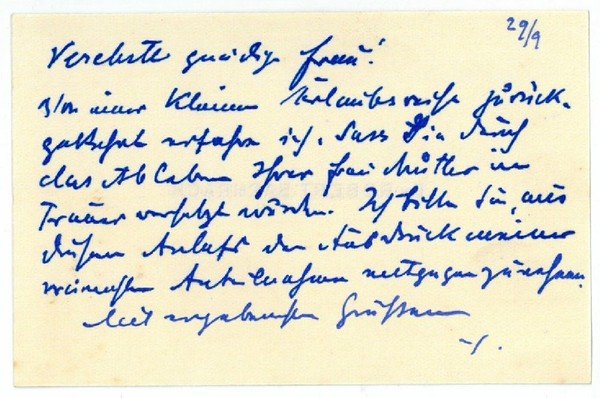 29/9
Verehrte gnädige Frau!
Von einer kleinen Urlaubsreise zurück-
gekehrt erfahre ich, dass Sie durch
das Ableben Ihrer Frau Mutter in
Trauer versetzt wurden. Ich bitte Sie, aus
diesem Anlaß den Ausdruck meiner
wärmsten Anteilnahme entgegenzunehmen.
Mit ergebensten Grüßen